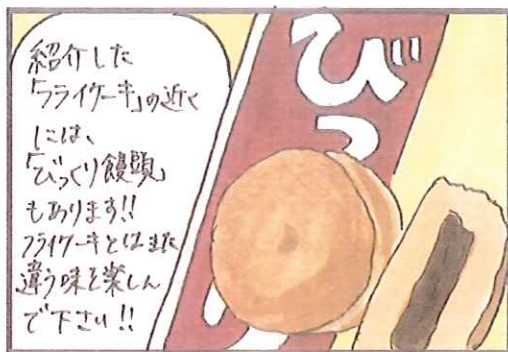 紹介した
「フライケーキ」の近く
には、
「びっくり饅頭」
もあります!!
フライケーキとはまた
違う味を楽しん
で下さい!!
びっ
り